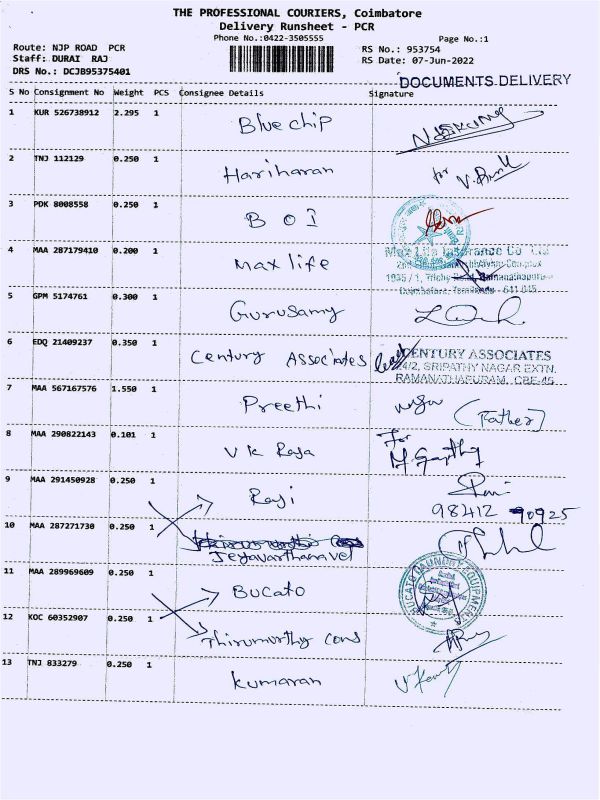 THE PROFESSIONAL COURIERS, Coimbatore
Delivery Runsheet - PCR
Phone No.:0422-3505555
Page No.:1
Route: NJP ROAD PCR
RS No.: 953754
Staff: DURAI RAJ
RS Date: 07-Jun-2022
DRS No.: DCJB95375401
DOCUMENTS DELIVERY
S No Consignment No Weight PCS Consignee Details Signature
1 KUR 526738912 2.295 1 Blue chip
2 TNJ 112129 0.250 1 Hariharan for
3 PDK 8008558 0.250 1 BOI
4 MAA 287179410 0.200 1 Max life
Max Life Insurance Co Ltd
5 GPM 5174761 0.300 1 Gurusamy
6 EDQ 21409237 0.350 1 Century Associates
CENTURY ASSOCIATES
24/2, SRIPATHY NAGAR EXTN.
RAMANATHAPURAM, CBE-45
7 MAA 567167576 1.550 1 Preethi (Father)
8 MAA 290822143 0.101 1 V K Raja For
9 MAA 291450928 0.250 1 Raji
98412 90925
10 MAA 287271730 0.250 1 Jeyavarthanavel
11 MAA 289969609 0.250 1 Bucato
BUCATO LAUNDRY EQUIPMENTS
12 KOC 60352907 0.250 1 Thirumorthy Cons
13 TNJ 833279 0.250 1 Kumaran